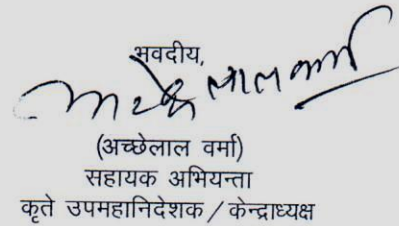 भवदीय,
अच्छेलाल वर्मा
(अच्छेलाल वर्मा)
सहायक अभियन्ता
कृते उपमहानिदेशक / केन्द्राध्यक्ष